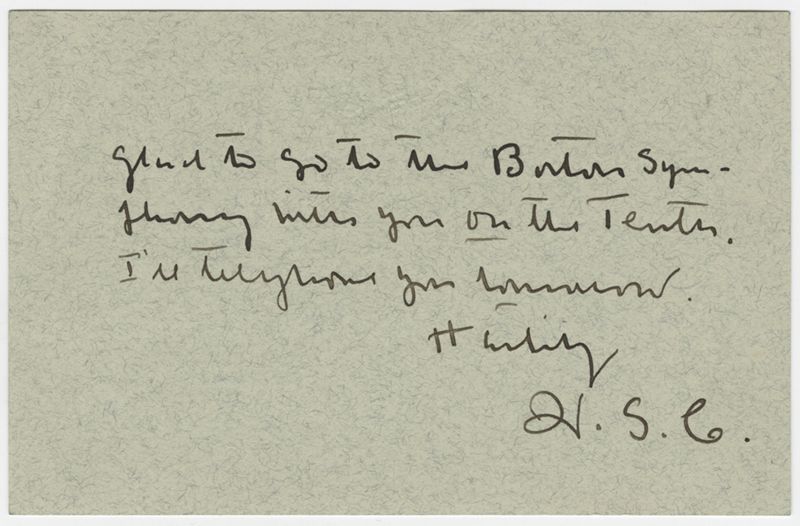 Glad to go to the Boston Sym-
phony with you on the Tenth.
I'll telephone you tomorrow.
Hastily
H. S. C.